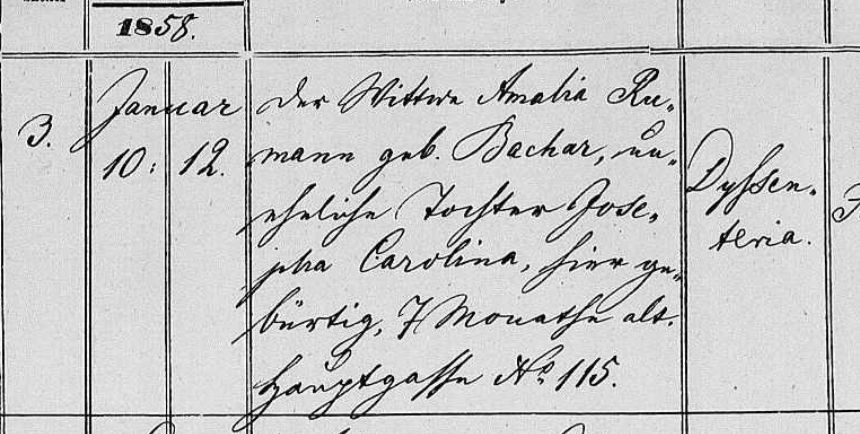 1858.
3.
Januar
10. 12.
der Wittwe Amalia Ru-
mann geb. Bachar, un-
eheliche Tochter Jose-
pha Carolina, hier ge-
bürtig, 7 Monathe alt.
Hauptgasse No 115.
Dyssen-
teria.